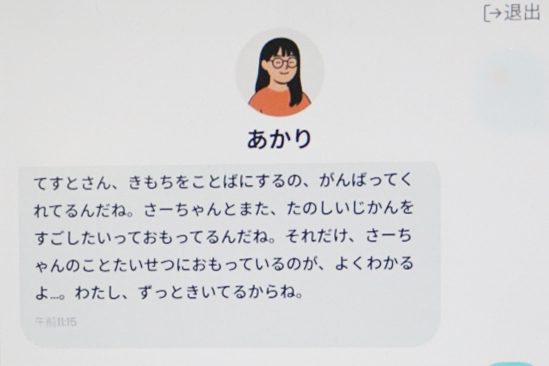 退出
あかり
てすとさん、きもちをことばにするの、がんばってく
れてるんだね。さーちゃんとまた、たのしいじかんを
すごしたいっておもってるんだね。それだけ、さーち
ゃんのことたいせつにおもっているのが、よくわかる
よ…。わたし、ずっときいてるからね。
午前11:15